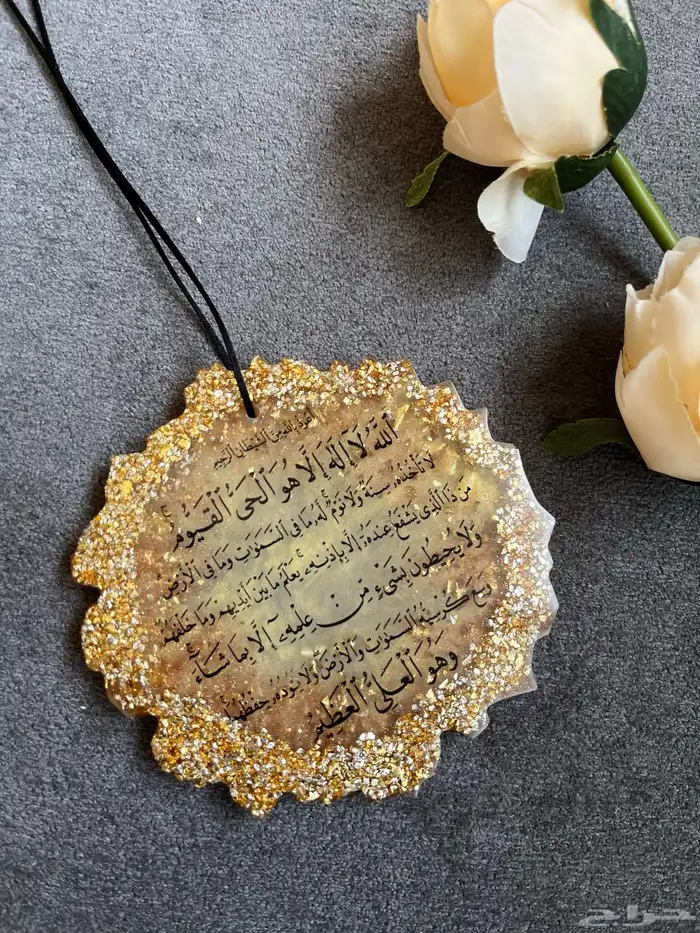 أعوذ بالله من الشيطان الرجيم
ٱللَّهُ لَآ إِلَٰهَ إِلَّا هُوَ ٱلْحَىُّ ٱلْقَيُّومُ ۚ
لَا تَأْخُذُهُۥ سِنَةٌ وَلَا نَوْمٌ ۚ لَّهُۥ مَا فِى ٱلسَّمَٰوَٰتِ وَمَا فِى ٱلْأَرْضِ
مَن ذَا ٱلَّذِى يَشْفَعُ عِندَهُۥٓ إِلَّا بِإِذْنِهِۦ ۚ يَعْلَمُ مَا بَيْنَ أَيْدِيهِمْ وَمَا خَلْفَهُمْ
وَلَا يُحِيطُونَ بِشَىْءٍ مِّنْ عِلْمِهِۦٓ إِلَّا بِمَا شَآءَ ۚ
وَسِعَ كُرْسِيُّهُ ٱلسَّمَٰوَٰتِ وَٱلْأَرْضَ ۖ وَلَا يَـُٔودُهُۥ حِفْظُهُمَا
وَهُوَ ٱلْعَلِىُّ ٱلْعَظِيمُ
حراج